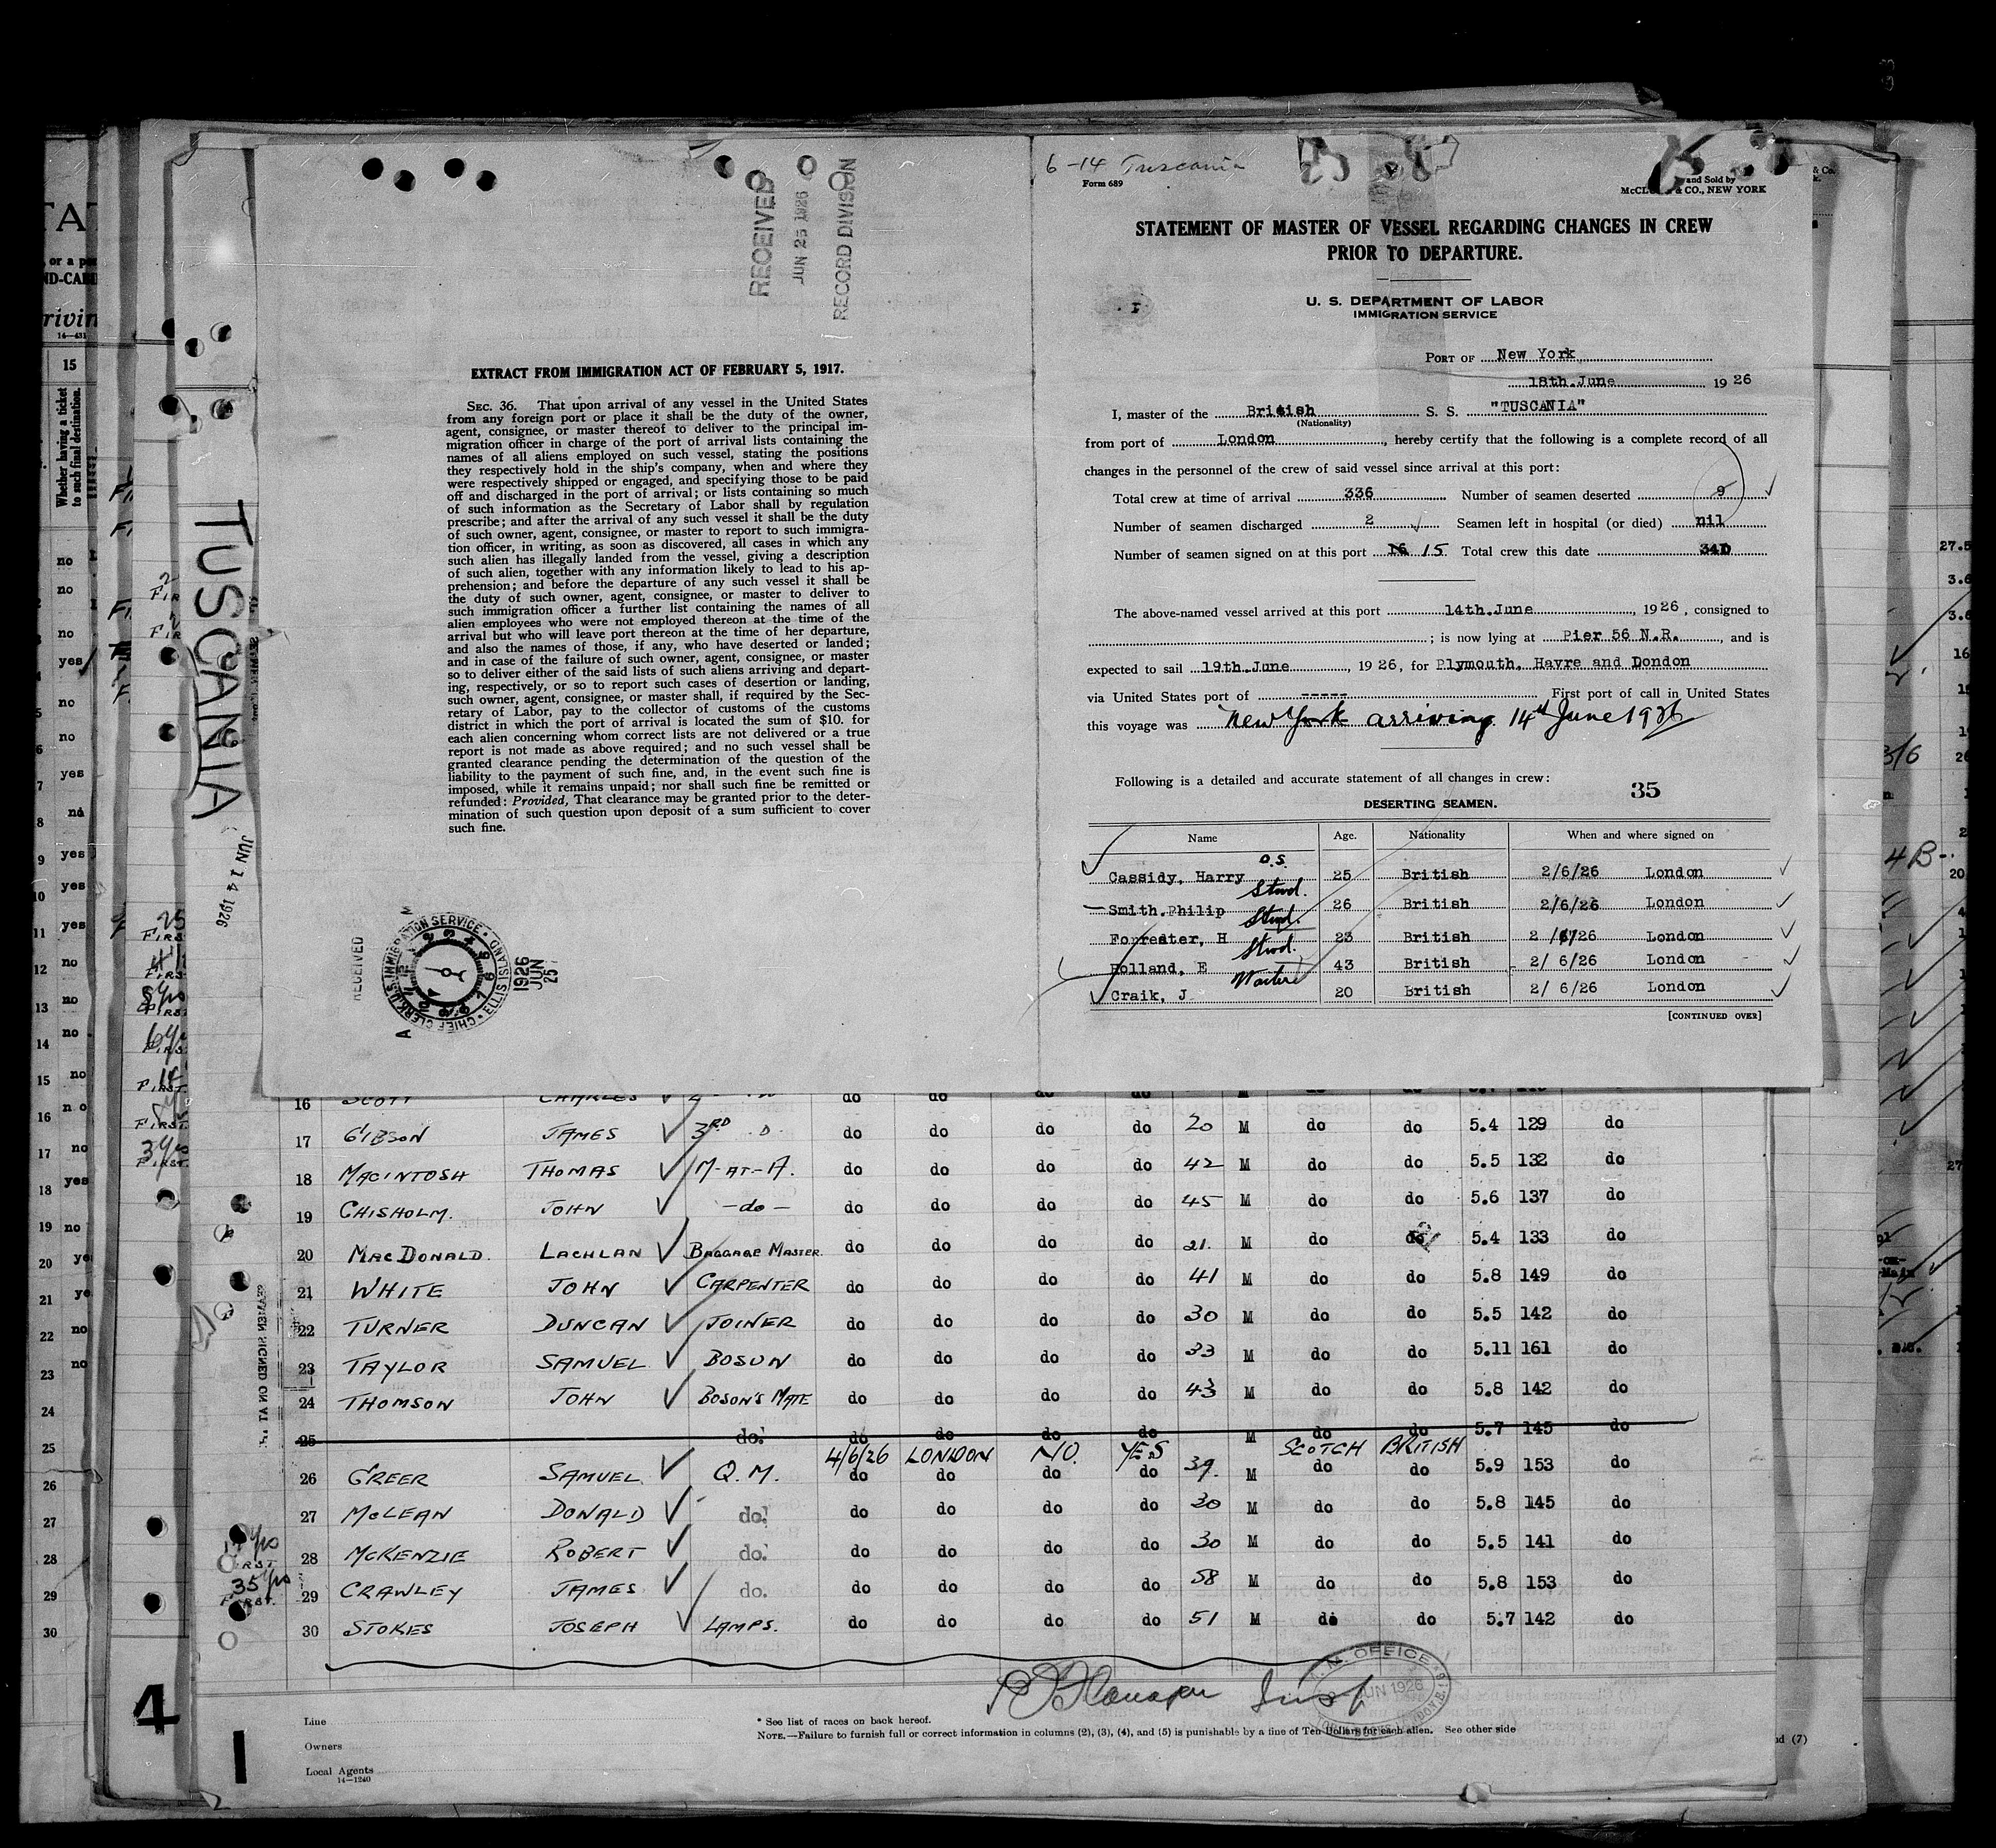 6-14 Tuscania
Form 689
and Sold by
& CO., NEW YORK
RECEIVED
JUN 25 1926
RECORD DIVISION
EXTRACT FROM IMMIGRATION ACT OF FEBRUARY 5, 1917.
SEC. 36. That upon arrival of any vessel in the United States
from any foreign port or place it shall be the duty of the owner,
agent, consignee, or master thereof to deliver to the principal im-
migration officer in charge of the port of arrival lists containing the
names of all aliens employed on such vessel, stating the positions
they respectively hold in the ship's company, when and where they
were respectively shipped or engaged, and specifying those to be paid
off and discharged in the port of arrival; or lists containing so much
of such information as the Secretary of Labor shall by regulation
prescribe; and after the arrival of any such vessel it shall be the duty
of such owner, agent, consignee, or master to report to such immigra-
tion officer, in writing, as soon as discovered, all cases in which any
such alien has illegally landed from the vessel, giving a description
of such alien, together with any information likely to lead to his ap-
prehension; and before the departure of any such vessel it shall be
the duty of such owner, agent, consignee, or master to deliver to
such immigration officer a further list containing the names of all
alien employees who were not employed thereon at the time of the
arrival but who will leave port thereon at the time of her departure,
and also the names of those, if any, who have deserted or landed;
and in case of the failure of such owner, agent, consignee, or master
so to deliver either of the said lists of such aliens arriving and depart-
ing, respectively, or so to report such cases of desertion or landing,
such owner, agent, consignee, or master shall, if required by the Sec-
retary of Labor, pay to the collector of customs of the customs
district in which the port of arrival is located the sum of $10. for
each alien concerning whom correct lists are not delivered or a true
report is not made as above required; and no such vessel shall be
granted clearance pending the determination of the question of the
liability to the payment of such fine, and, in the event such fine is
imposed, while it remains unpaid; nor shall such fine be remitted or
refunded: Provided, That clearance may be granted prior to the deter-
mination of such question upon deposit of a sum sufficient to cover
such fine.
RECEIVED
U.S. IMMIGRATION SERVICE · ELLIS ISLAND · CHIEF CLERK
1926 JUN 25
TUSCANIA
JUN 14 1926
STATEMENT OF MASTER OF VESSEL REGARDING CHANGES IN CREW
PRIOR TO DEPARTURE.
U. S. DEPARTMENT OF LABOR
IMMIGRATION SERVICE
PORT OF New York
18th.June 1926
I, master of the British S. S. "TUSCANIA"
(Nationality)
from port of London, hereby certify that the following is a complete record of all
changes in the personnel of the crew of said vessel since arrival at this port:
Total crew at time of arrival 336 Number of seamen deserted 9
Number of seamen discharged 2 Seamen left in hospital (or died) nil
Number of seamen signed on at this port 16 15 Total crew this date 340
The above-named vessel arrived at this port 14th.June, 1926, consigned to
; is now lying at Pier 56 N.R., and is
expected to sail 19th.June, 1926, for Plymouth, Havre and Dondon
via United States port of ----- First port of call in United States
this voyage was New York arriving 14th June 1926
Following is a detailed and accurate statement of all changes in crew:
35
DESERTING SEAMEN.
Name Age. Nationality When and where signed on
Cassidy, Harry O.S. 25 British 2/6/26 London
Smith.Philip Stwd. 26 British 2/6/26 London
Forrester, H Stwd. 23 British 2/6/26 London
Holland, E Stwd. 43 British 2/ 6/26 London
Craik, J 20 British 2/ 6/26 London
[CONTINUED OVER]
16 SCOTT CHARLES do do do do do do
17 GIBSON JAMES 3RD .D. do do do do 20 M do do 5.4 129 do
18 MACINTOSH THOMAS M-AT-A. do do do do 42 M do do 5.5 132 do
19 CHISHOLM. JOHN -do- do do do do 45 M do do 5.6 137 do
20 MACDONALD. LACHLAN BAGGAGE MASTER. do do do do 21. M do do 5.4 133 do
21 WHITE JOHN CARPENTER do do do do 41 M do do 5.8 149 do
22 TURNER DUNCAN JOINER do do do do 30 M do do 5.5 142 do
23 TAYLOR SAMUEL BOSUN do do do do 33 M do do 5.11 161 do
24 THOMSON JOHN BOSON'S MATE do do do do 43 M do do 5.8 142 do
25 do. do do do do M do do 5.7 145 do
4/6/26 LONDON NO. YES SCOTCH BRITISH
26 GREER SAMUEL Q.M. do do do do 39. M do do 5.9 153 do
27 MCLEAN DONALD do. do do do do 30 M do do 5.8 145 do
28 MCKENZIE ROBERT do. do do do do 30 M do do 5.5 141 do
29 CRAWLEY JAMES do. do do do do 58 M do do 5.8 153 do
30 STOKES JOSEPH LAMPS. do do do do 51 M do do 5.7 142 do
Line
Owners
Local Agents
14-1240
* See list of races on back hereof.
NOTE.—Failure to furnish full or correct information in columns (2), (3), (4), and (5) is punishable by a fine of Ten Dollars for each alien. See other side
JUN 1926
4
1
15
Whether having a ticket
to such final destination.